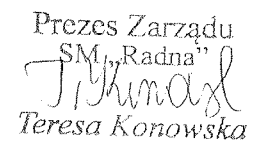 Prezes Zarządu
SM „Radna”
Teresa Konowska